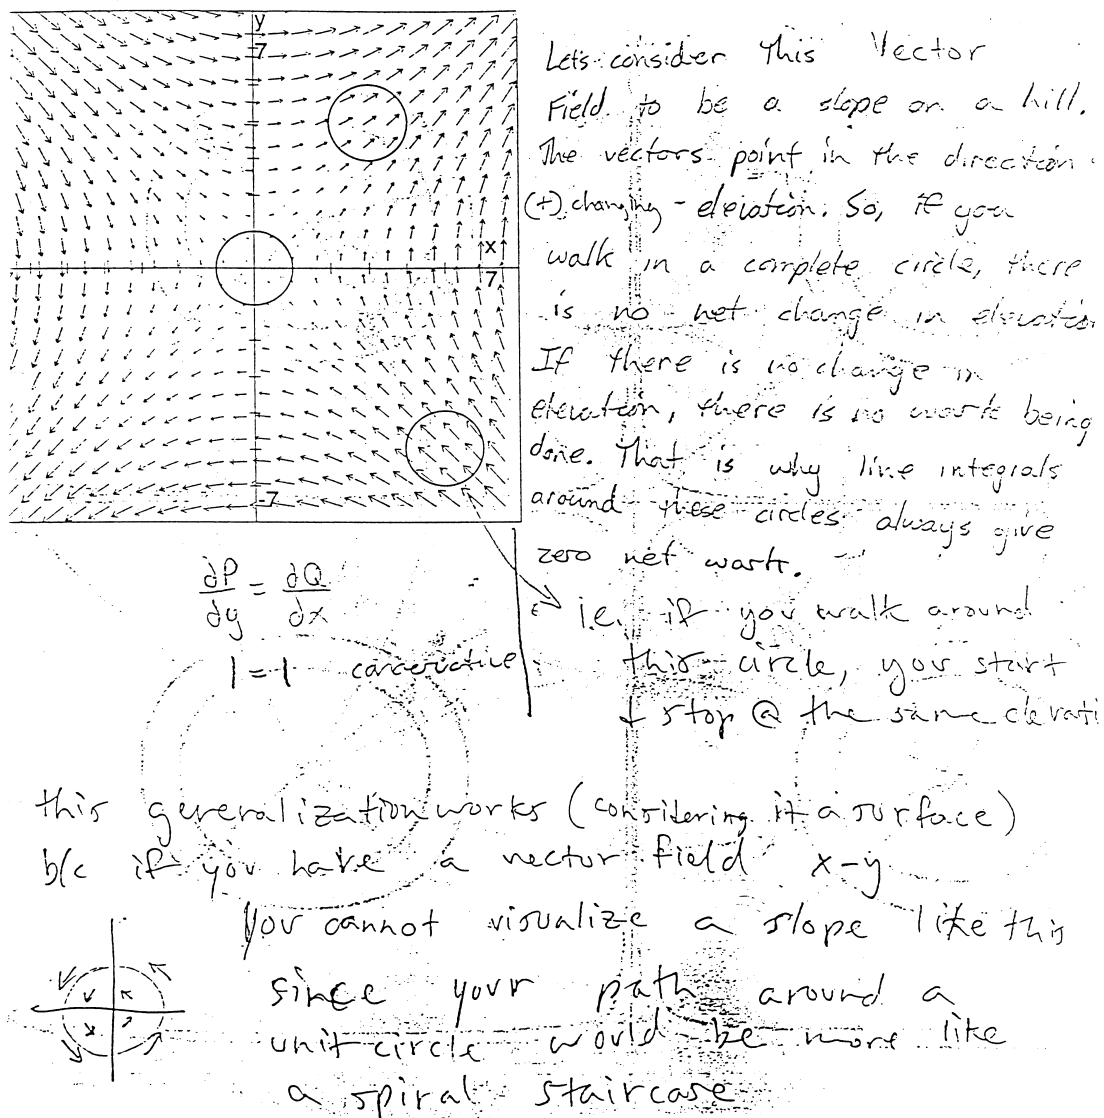 y
7
x
7
-7
Let's consider This Vector
Field to be a slope on a hill.
The vectors point in the direction
(+) changing - elevation. So, if you
walk in a complete circle, there
is no net change in elevation
If there is no change in
elevation, there is no work being
done. That is why line integrals
around these circles always give
zero net work.
i.e. if you walk around
this circle, you start
+ stop @ the same elevati
∂P/∂y = ∂Q/∂x
1 = 1 conservative
this generalization works (considering it a surface)
b/c if you have a vector field x-y
you cannot visualize a slope like this
since your path around a
unit circle would be more like
a spiral staircase